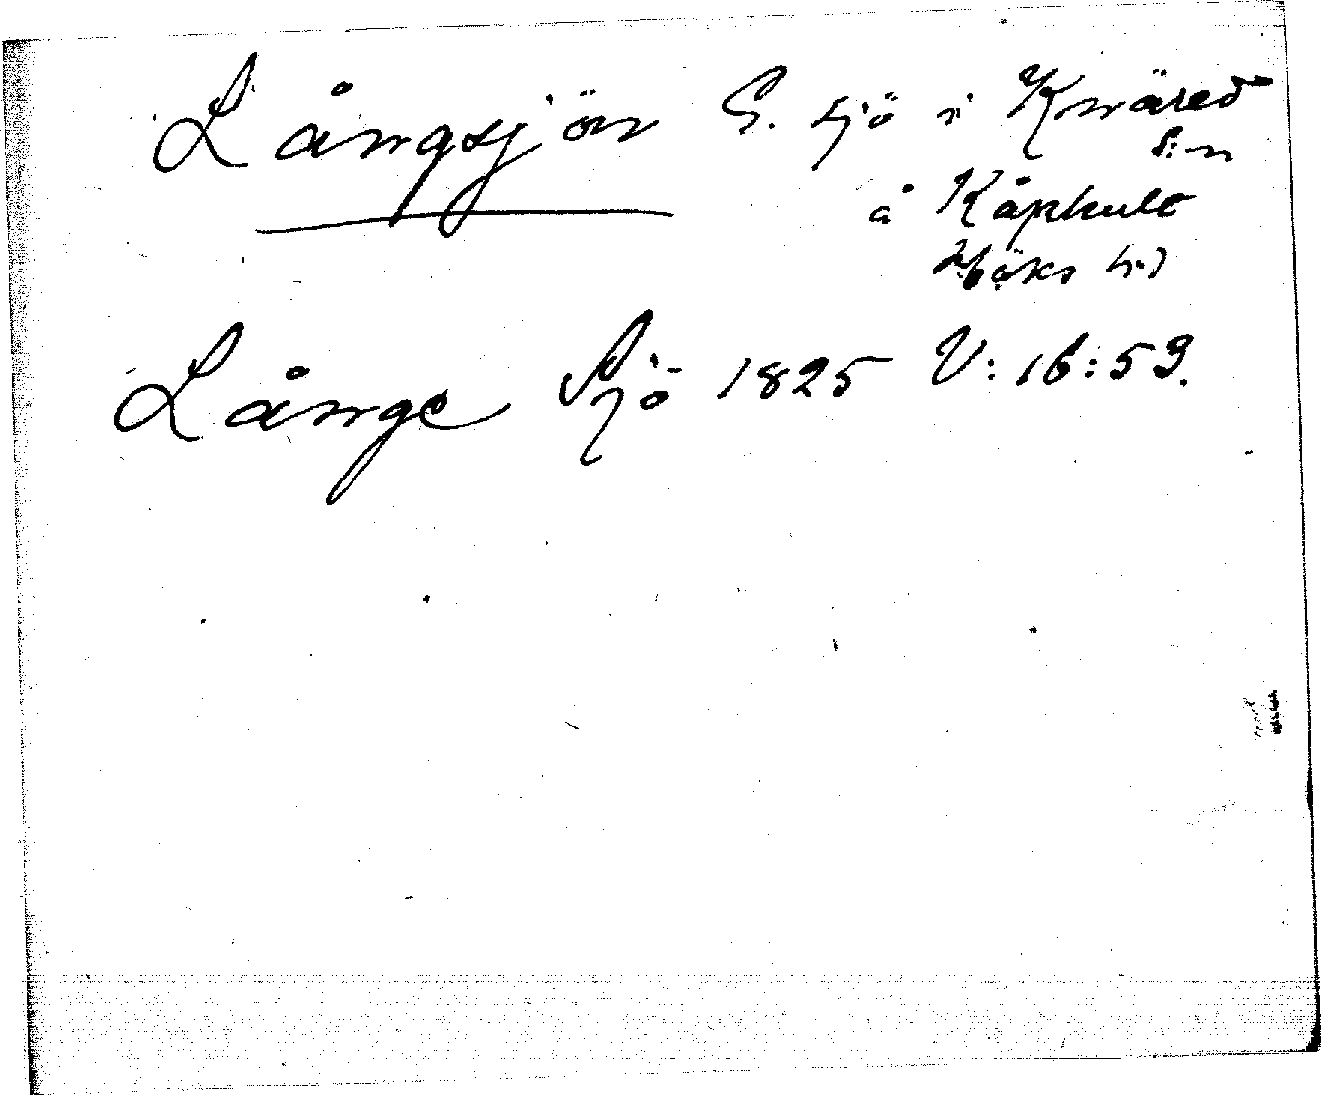 Långsjön S. sjö i Knäred
s:n
å Kåphult
Höks h:d
Långe Sjö 1825 V: 16: 59.